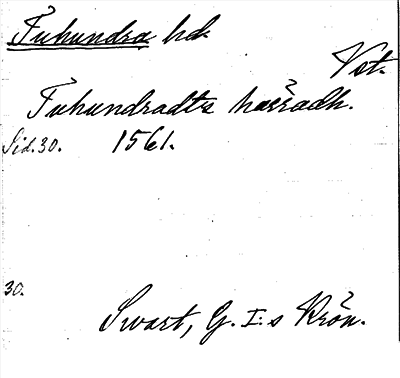 Tuhundra hd.
Vst.
Tuhundradtz häradh.
Sid. 30. 1561.
30.
Swart, G. I:s Krön.